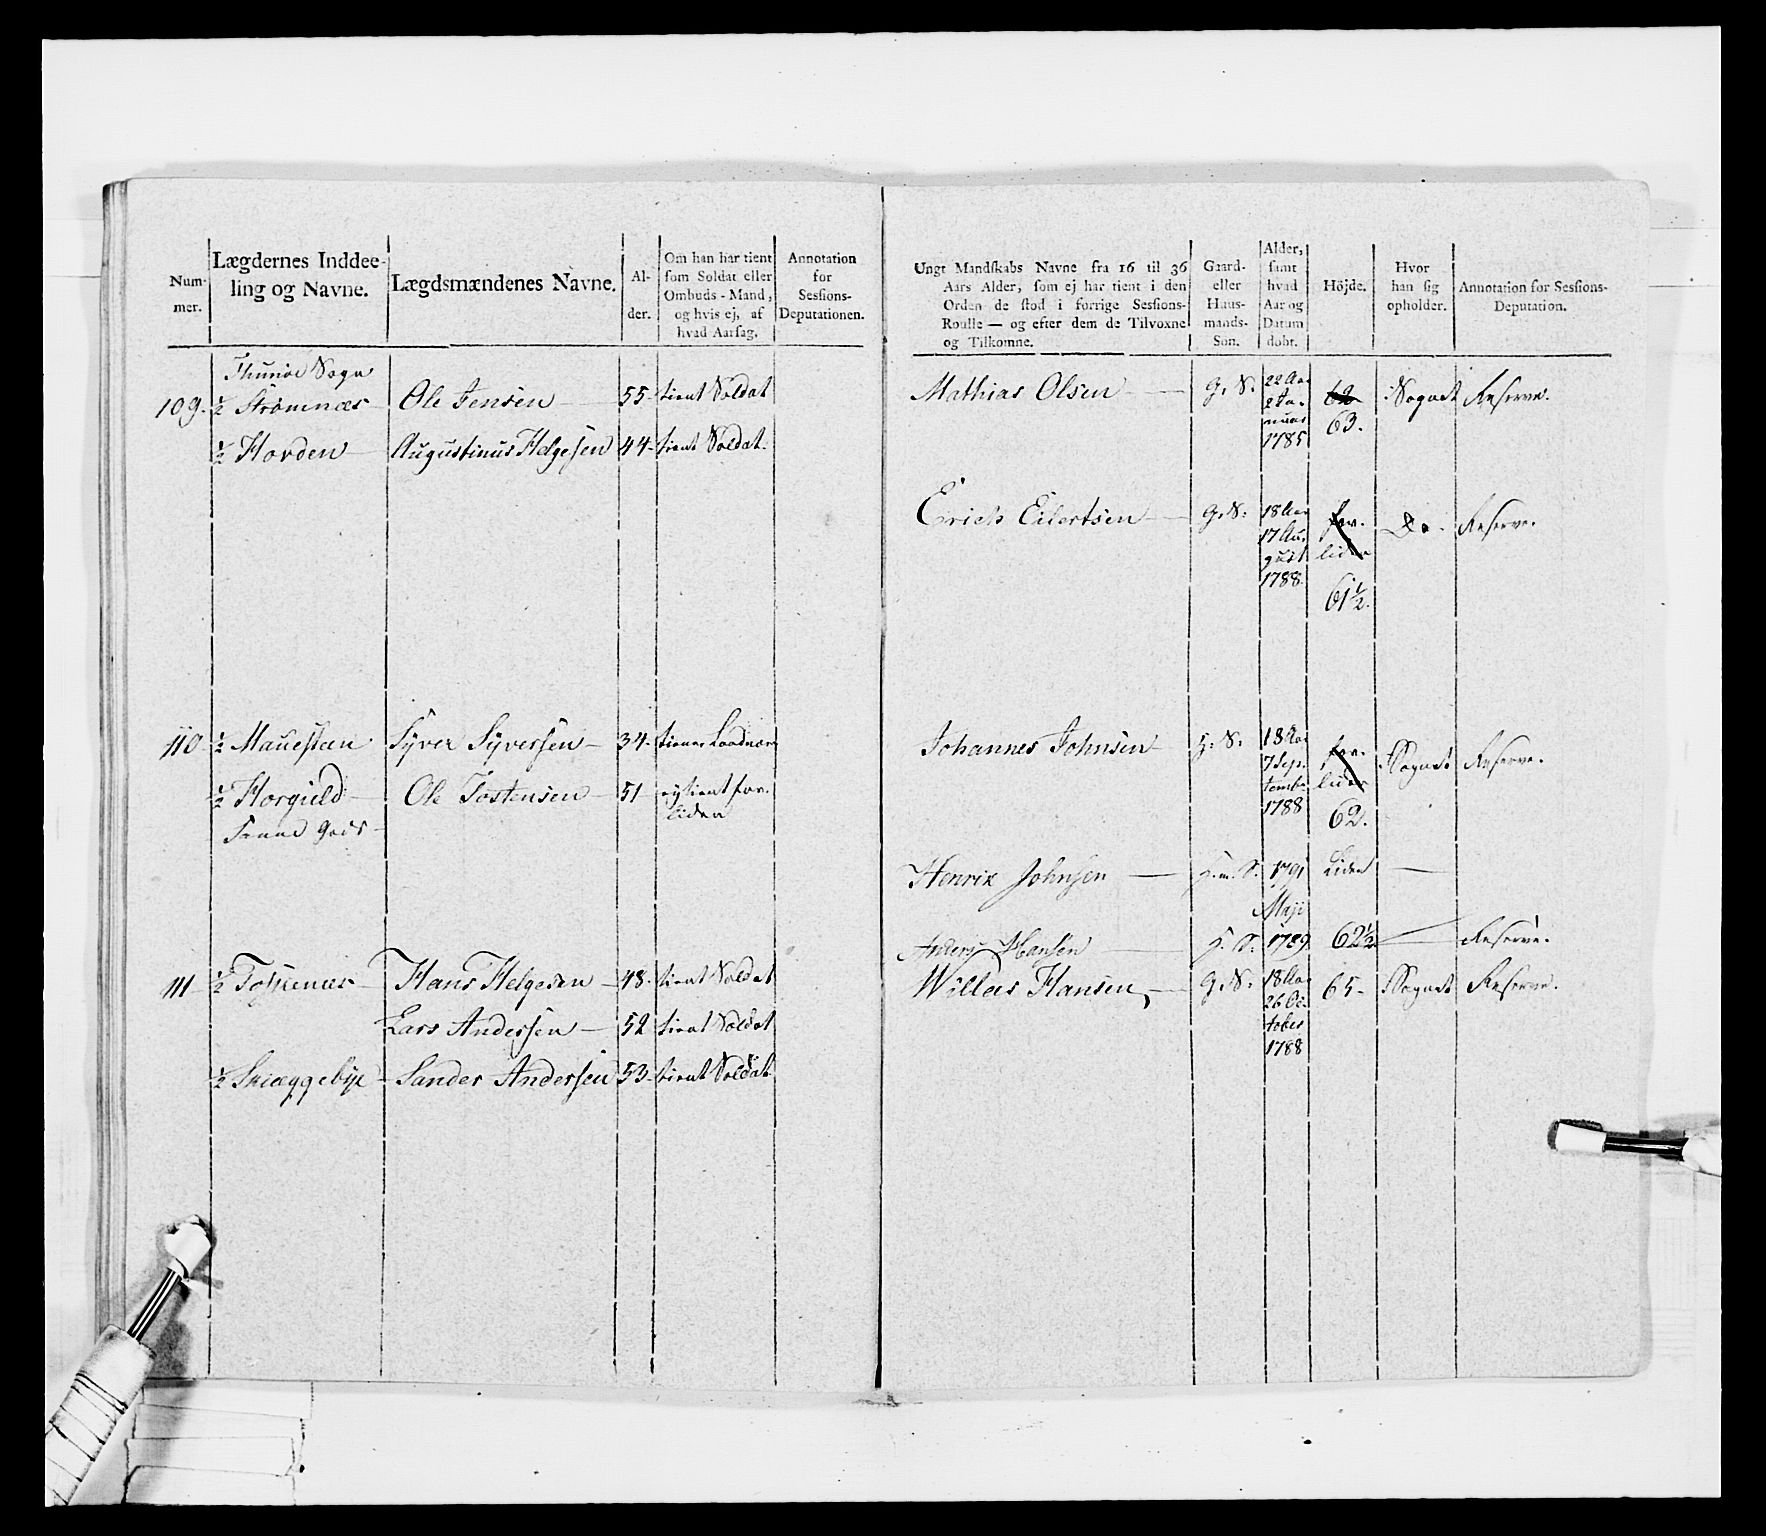 Num-
mer.
Lægdernes Inddee-
ling og Navne.
Lægdsmændenes Navne.
Al-
der.
Om han har tient
som Soldat eller
Ombuds-Mand,
og hvis ej, af
hvad Aarsag.
Annotation
for
Sessions-
Deputationen.
Ungt Mandskabs Navne fra 16 til 36
Aars Alder, som ej har tient i den
Orden de stod i forrige Sessions-
Roulle — og efter dem de Tilvoxne
og Tilkomne.
Gaard-
eller
Huus-
mands-
Søn.
Alder,
samt
hvad
Aar og
Datum
døbt.
Höjde.
Hvor
han sig
opholder.
Annotation for Sessions-
Deputation.
Thunöe Sogn
109. ½ Strömnæs Ole Jensen 55 tient Soldat
½ Hovden Augustinus Helgesen 44 tient Soldat.
110 ½ Mauesteen Syver Syversen 34 tiener Loodværn
½ Horgield Ole Tostensen 51 ej tient for-
liden
Gods
111 ½ Hans Helgesen 48 tient Soldat
Lars Andersen 52 tient Soldat
½ Skiæggebye Sander Andersen 53 tient Soldat
Mathias Olsen G. S. 22 Aar
2 Ja-
nuar
1785
62
63.
Sognet Reserve.
Erich Eilertsen G. S. 18 Aar
17 Au-
gust
1788
for-
liden
61½.
Do. Reserve.
Johannes Johnsen H. S. 18 Aar
7 Sep-
tembr
1788
for-
liden
62.
Sognet Reserve.
Henrik Johnsen H. m. S. 1791 Liden
Anders Hansen H. S. Maji
1789 62½ Reserve.
Willas Hansen, G. S. 18 Aar
26 Oc-
tober
1788
65 Sognet Reserve.